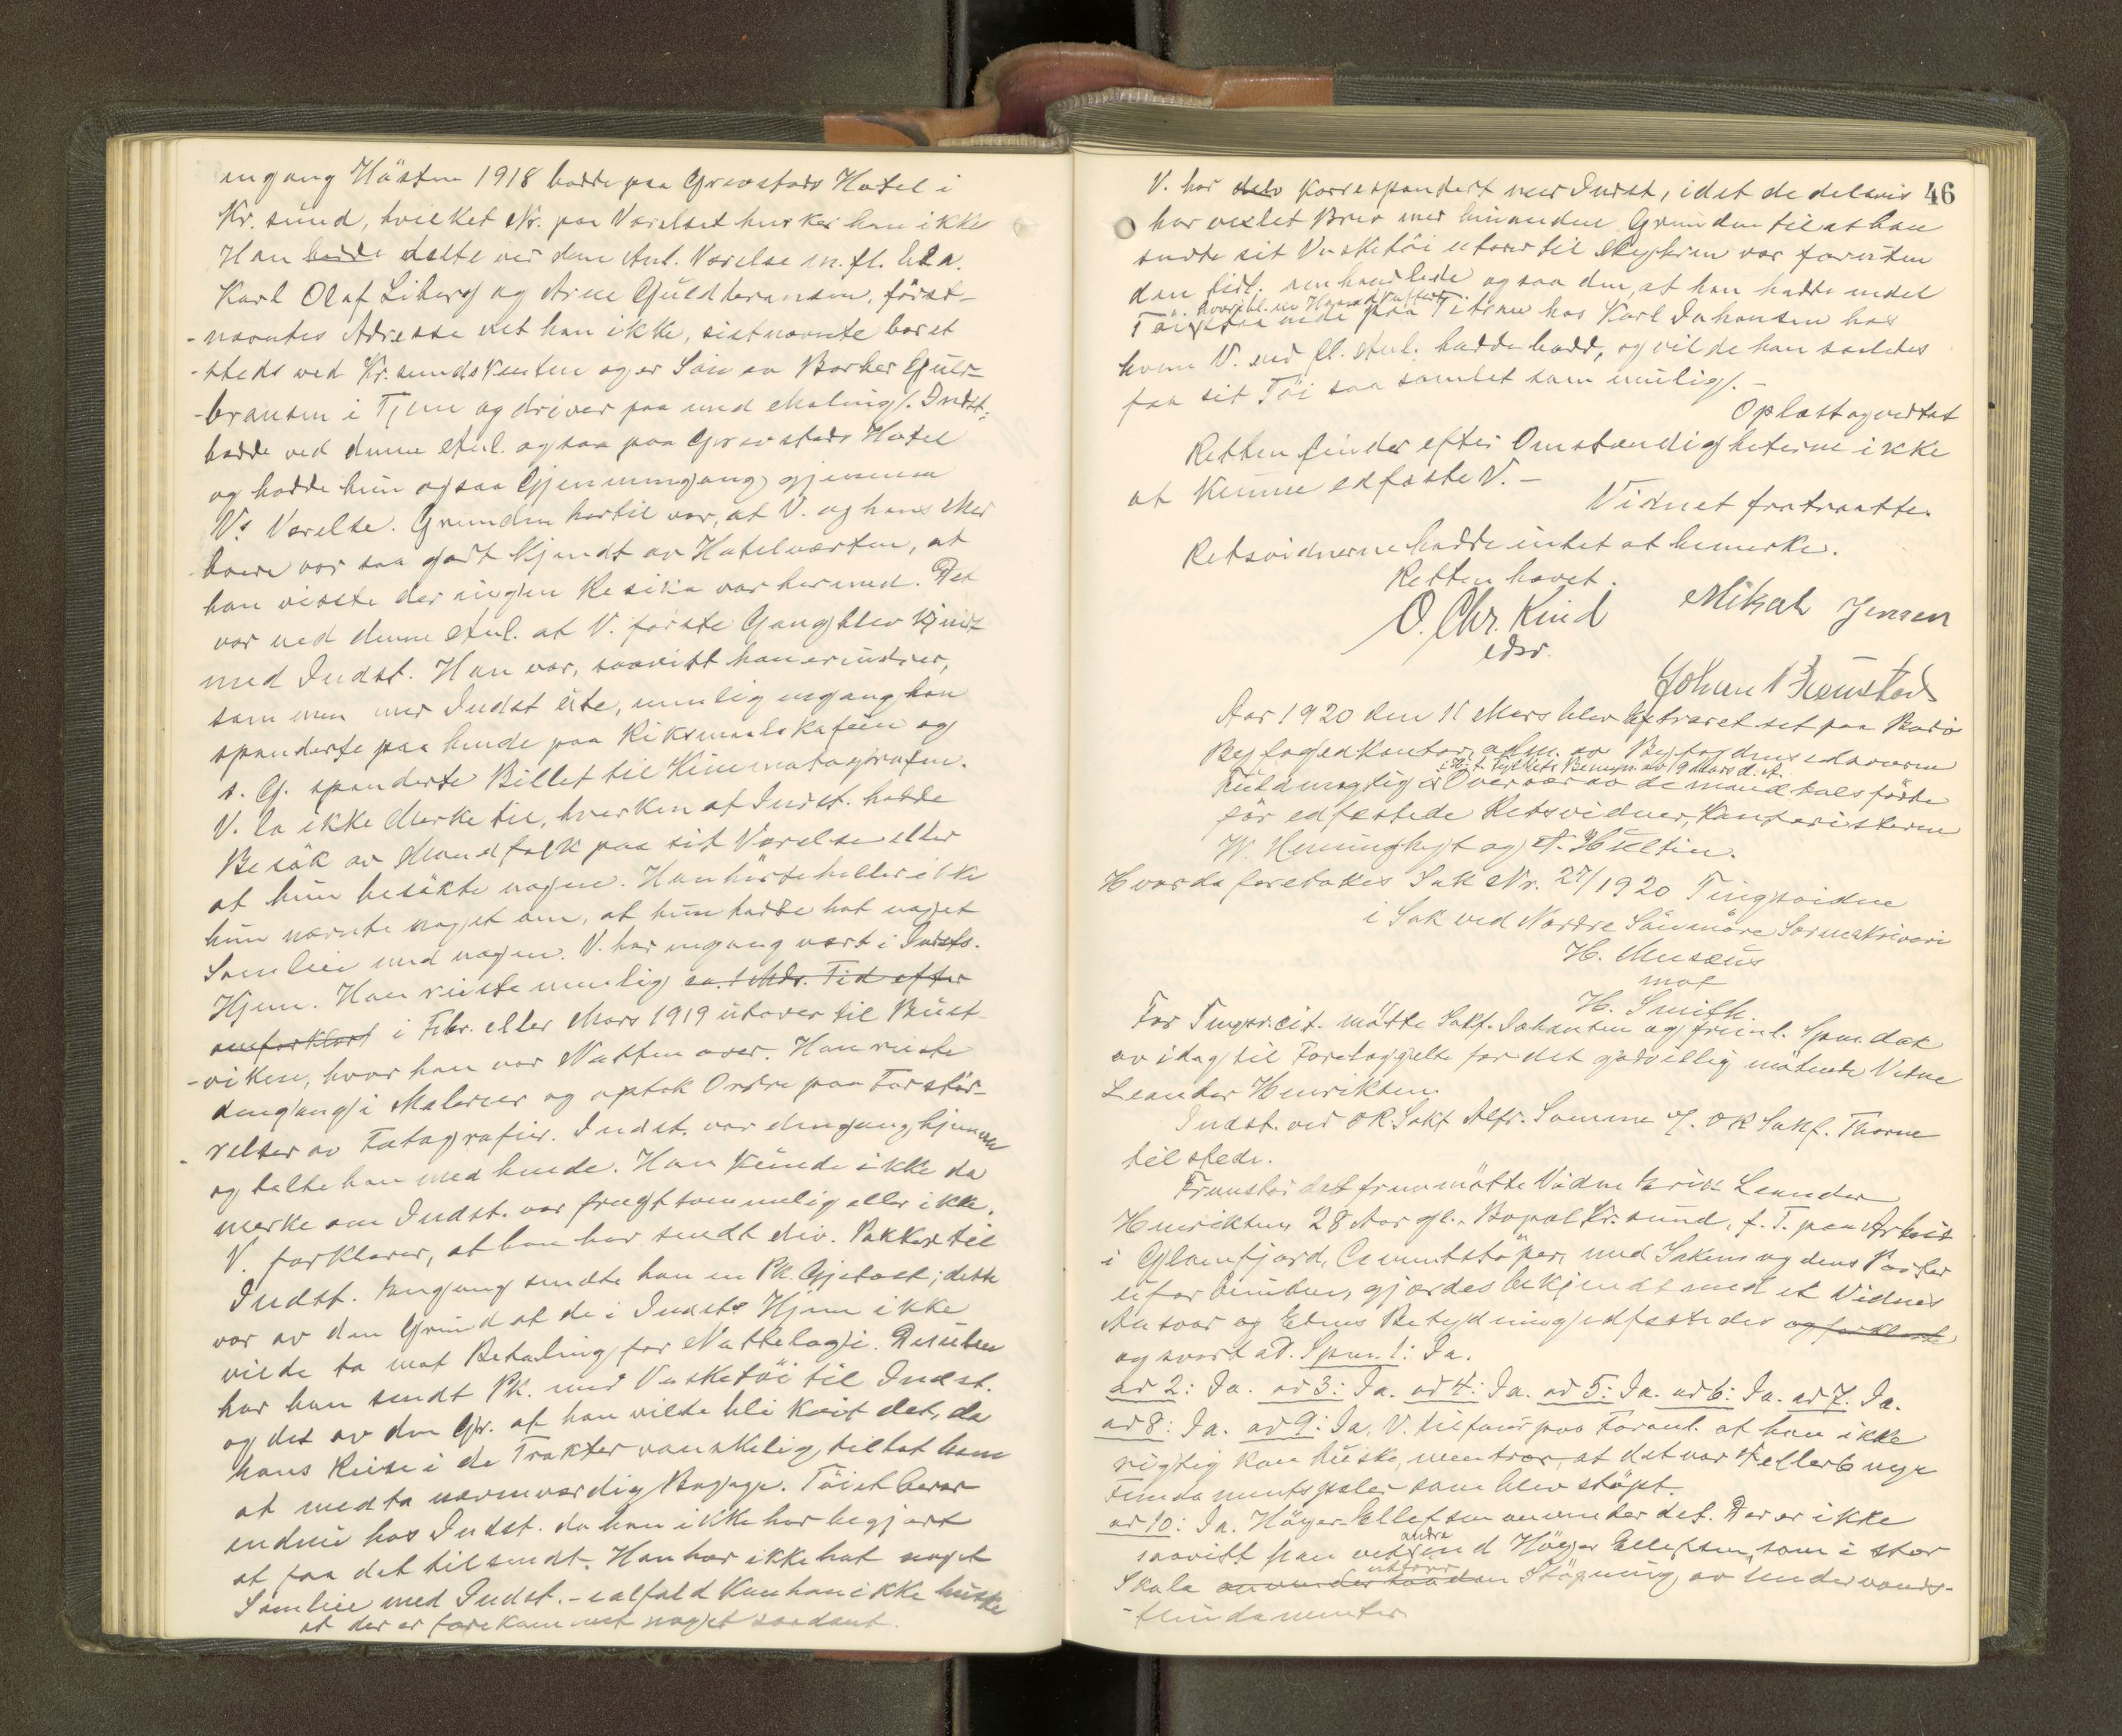 engang Hösten 1918 bodde paa Grevstads Hotel i
Kr. sund, hvilket Nr. paa Værelset husker han ikke
Han bodde delte ved den Anl. Værelse m. fl. bl. a.
Karl Olaf Liberg og Arne Guldbransen, först-
-nævntes Adresse vet han ikke, sistnævnte bor et
-steds ved Kr.sunds Kanten og er Sön av Barber Guld-
-bransen i Tjme og driver paa med Maling. Indst.
bodde ved denne Anl. ogsaa paa Grevstads Hotel
og hadde hun ogsaa Gjennemgang gjennem
V's Værelse. Grunden hertil var, at V. og hans Med
boere var saa godt kjendt av Hotelværten, at
han visste der ingen Risiko var hermed. Det
var ved denne Anl. at V. förste Gang blev kjendt
med Indst. Han var, saavidt han erindrer,
sammen med Indst ute, nemlig engang han
spanderte paa hende paa Riksmaalskafeen og
s. G. spanderte Billet til Kinematografen.
V. la ikke Merke til, hverken at Indst. hadde
Besök av Mandfolk paa sit Værelse eller
at hun besökte nogen. Han hörte heller ikke
hun nævnte noget om, at hun hadde hat noget
Samleie med nogen. V. har engang vært i Indsts.
Hjem. Han reiste nemlig ca. 1 Mdr. Tid efter
omforklart i Febr. eller Mars 1919 utover til Bust-
-viken, hvor han var Natten over. Han reiste
dengang i Malerier og optok Ordre paa Forstör-
-relser av Fotografier. Indst. var dengang hjemme
og talte han med hende. Han kunde ikke da
merke om Indst. var frugtsommelig eller ikke.
V. forklarer, at han har sendt div. Pakker til
Indst. Engang sendte han en Pk. Gjetost; dette
var av den Grund at de i Indsts Hjem ikke
vilde ta mot Betaling for Nattelogi. Desuten
har han sendt Pk. med Vasketöi til Indst.
og det av den Gr. at han vilde bli kvit det, da
hans Reise i de Trakter vanskelig tillot ham
at medta nævneværdig Bagage. Töiet beror
endnu hos Indst. da han ikke har begjært
at faa det tilsendt. Han har ikke hat noget
Samleie med Indst. - ialfald kan han ikke huske
at der er forekommet noget saadant.
46
V. har delv korrespondert med Indst, idet de delvis
har vexlet Brev med hinanden Grunden til at han
sendte sit Vasketöi utover til var foruten
den tidl. omhandlede ogsaa den, at han hadde endel
Töi nede paa Titran hos Karl Johansen hos
hvem V. ved fl. Anl. hadde bodd, og vilde han saaledes
faa sit Töi saa samlet som mulig. -
Oplæst og vedtat
Retten finder efter Omstændigheterne ikke
at kunne edfæste V. -
Vidnet fratraatte.
Retsvidnerne hadde intet at bemerke.
Retten hævet.
O. Chr. Kind Mikal Jensen
edsv.
Johan Brönstad
Aar 1920 den 11 Mars blev Extraret sat paa Bodö
Byfogedkontor, adm. av Byfogdens edsvorne
i H. t. Bemyn. av 19 Mars d. A.
Fuldmægtig i Overvær av de mandtalsförte
för edfæstede Retsvidner, Kontoristerne
W. Henninghgt og A. Hultin.
Hvorda foretokes Sak Nr. 27/1920 Tingsvidne
i Sak ved Nordre Söndmöre Sorenskriveri
H. Musæus
mot
H. Smith.
For Tingsv.cit. mötte Sakf. Johansen og freml. Spm dat
av idag til Foretaggelse for det godvillig mötende Vidne
Leander Henriksen.
Indst. ved OR.Sakf Alfr. Somme v/ OR Sakf. Thorne
tilstede.
Fremstod det fremmötte Vidne Erik Leander
Henriksen, 28 Aar gl., Bopæl Kr.sund, f. T. paa Arbeid
i Glomfjord, Cementstöper, med Sakens og dens Parter
utforbunden, gjordes bekjendt med et Vidnes
Ansvar og Edens Betydning edfæstedes og forklarte
og svarte ad. Spm. 1: Ja.
ad 2: Ja. ad 3: Ja. ad 4: Ja. ad 5: Ja. ad 6: Ja. ad 7. Ja.
ad 8: Ja. ad 9: Ja. V. tilföier paa Foranl. at han ikke
rigtig kan huske, men tror, at det var 4 eller 6 nye
Fundamentspæler som blev stöpt.
ad 10: Ja. Höyer-Ellefsen anvender det. Der er ikke
andre
saavidt han vet end Höyer Ellefsen, som i stor
utförer
Skala anvender saadan Stöpning av Undervands-
-fundamenter